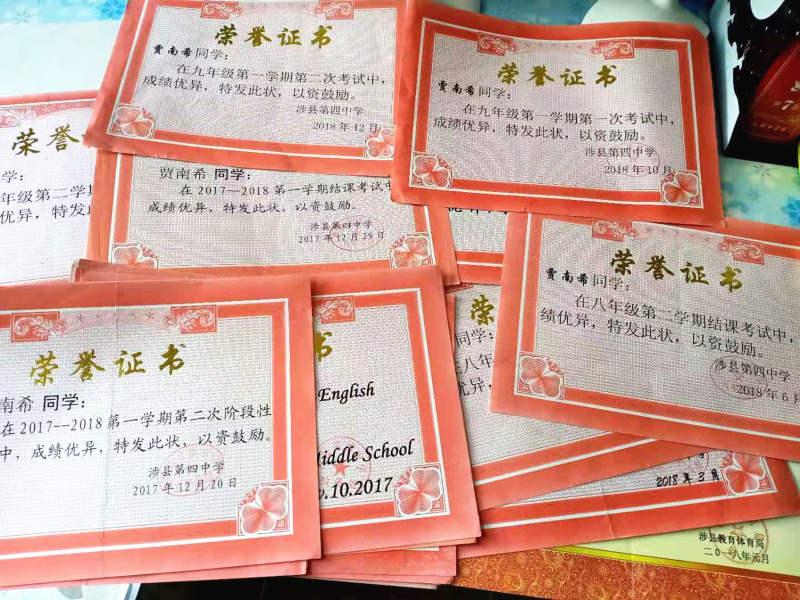 荣誉证书
贾南希同学：
在九年级第一学期第二次考试中，
成绩优异，特发此状，以资鼓励。
涉县第四中学
2018年12月
荣誉证书
贾南希同学：
在九年级第一学期第一次考试中，
成绩优异，特发此状，以资鼓励。
涉县第四中学
2018年10月
荣誉证
学：
年级第二学期
优异，特发
贾南希 同学：
在 2017—2018 第一学期结课考试中
成绩优异，特发此状，以资鼓励。
涉县第四中学
2017年12月29日
荣誉证书
贾南希同学：
在八年级第二学期结课考试中，
绩优异，特发此状，以资鼓励。
涉县第四中学
2018年6月
荣誉证书
南希 同学：
在 2017--2018 第一学期第二次阶段性
中，成绩优异，特发此状，以资鼓励。
涉县第四中学
2017年12月20日
书
English
Middle School
.10.2017
荣
同学：
在八年
绩优异
2018年3月
涉县教育体育局
二〇一八年元月